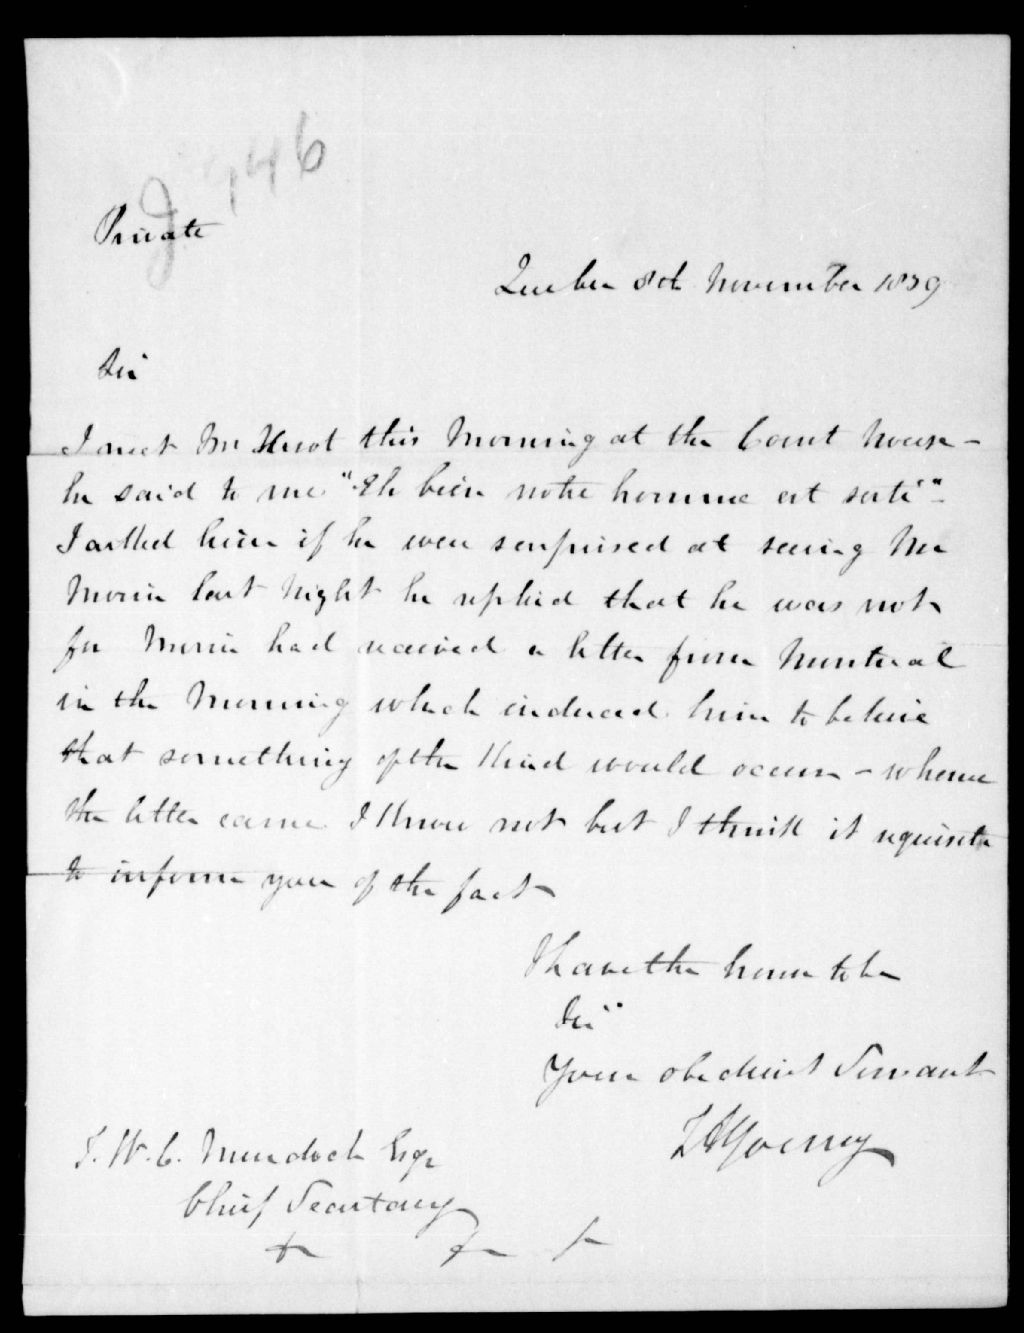 J 946
Private
Quebec 8th November 1839
Sir
I met Mr Huot this Morning at the Court house -
he said to me "Eh bien notre homme est sorti" -
I asked him if he were surprised at seeing Mr
Morin last Night he replied that he was not
for Morin had received a letter from Montreal
in the Morning which induced him to believe
that something of the Kind would occur - whence
the letter came I Know not but I think it requisite
to inform you of the fact
I have the honor to be
Sir
Your obedient Servant
T A Young
T. W. C. Murdoch Esqr
Chief Secretary